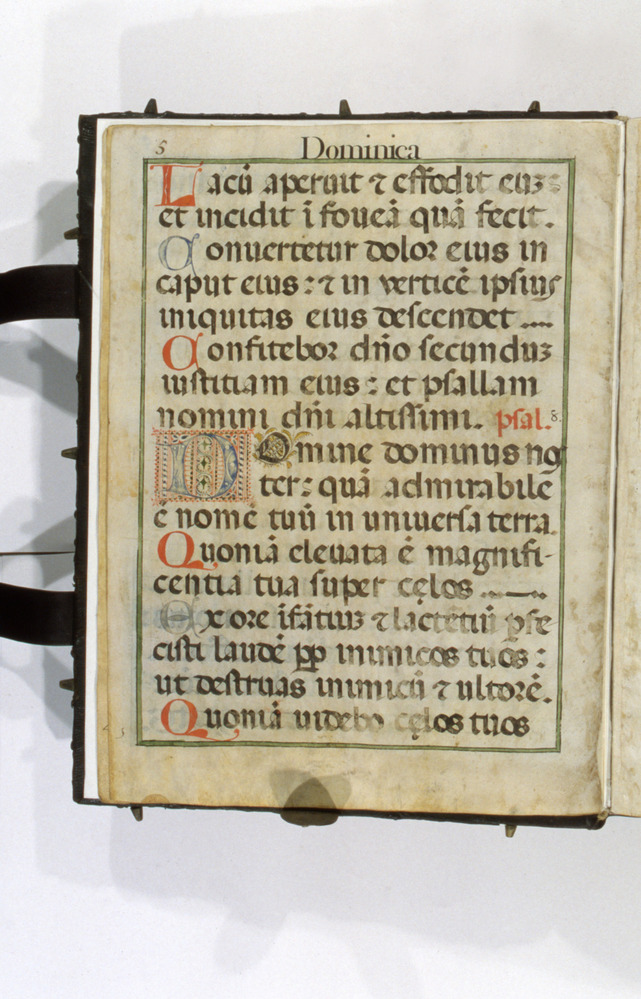 5 Dominica
Lacū aperuit ⁊ effodit euꝫ:
et incidit ī foueā quā fecit.
Conuertetur doloꝛ eius in
caput eius : ⁊ in verticē ipsius
iniquitas eius descendet
Confiteboꝛ dn̄o secunduꝫ
iustitiam eius : et psallam
nomini dn̄i altissimi. psal. 8.
Domine dominus nos
ter: quā admirabile
ē nomē tuū in uniuersa terra.
Quoniā eleuata ē magnifi-
centia tua super cęlos
Ex oꝛe īfātiuꝫ ⁊ lactētiū ꝑfe
cisti laudē ꝓp inimicos tuos :
ut destruas inimicū ⁊ ultoꝛē.
Quoniā uidebo cęlos tuos